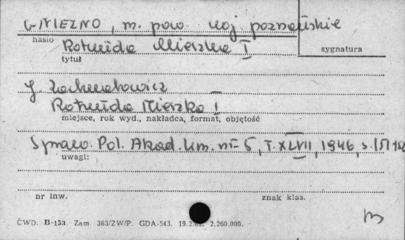 GNIEZNO, m. pow. woj. poznańskie
hasło Rotunda Mieszka I sygnatura
tytuł
J. Zachwatowicz
Rotunda Mieszka I
miejsce, rok wyd., nakładca, format, objętość
Spraw. Pol. Akad. Um. nr 5, T. XLVII, 1946, s.
uwagi:
nr inw. znak klas.
ĆWD. B-153. Zam. 363/ZW/P. GDA-543. 2.260.000.